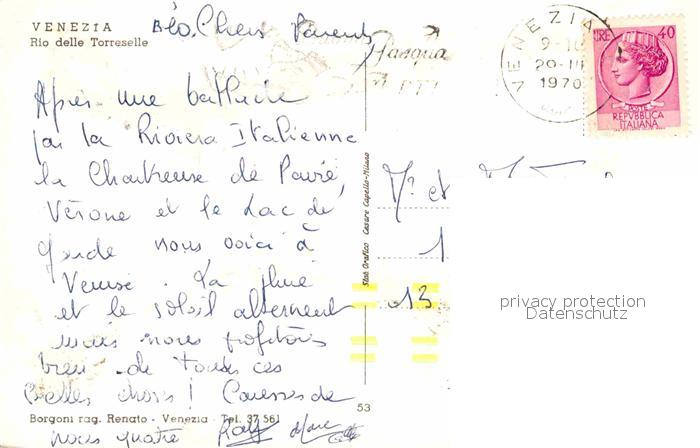 VENEZIA
Rio delle Torreselle
Chers Parents
Après une battue
par la Riviera Italienne
la Chartreuse de Pavie,
Vérone et le Lac de
Garde nous voici à
Venise. La pluie
et le soleil alternent
mais nous profitons
bien de toutes ces
belles choses! Caresses de
nous quatre
Borgoni rag. Renato - Venezia - Tel. 37 561
53
Stab. Grafico Cesare Capello - Milano
Pasqua
VENEZIA
9-10
29-III
1970
LIRE 40
POSTE
REPVBBLICA
ITALIANA
Mr et
1
13
privacy protection
Datenschutz